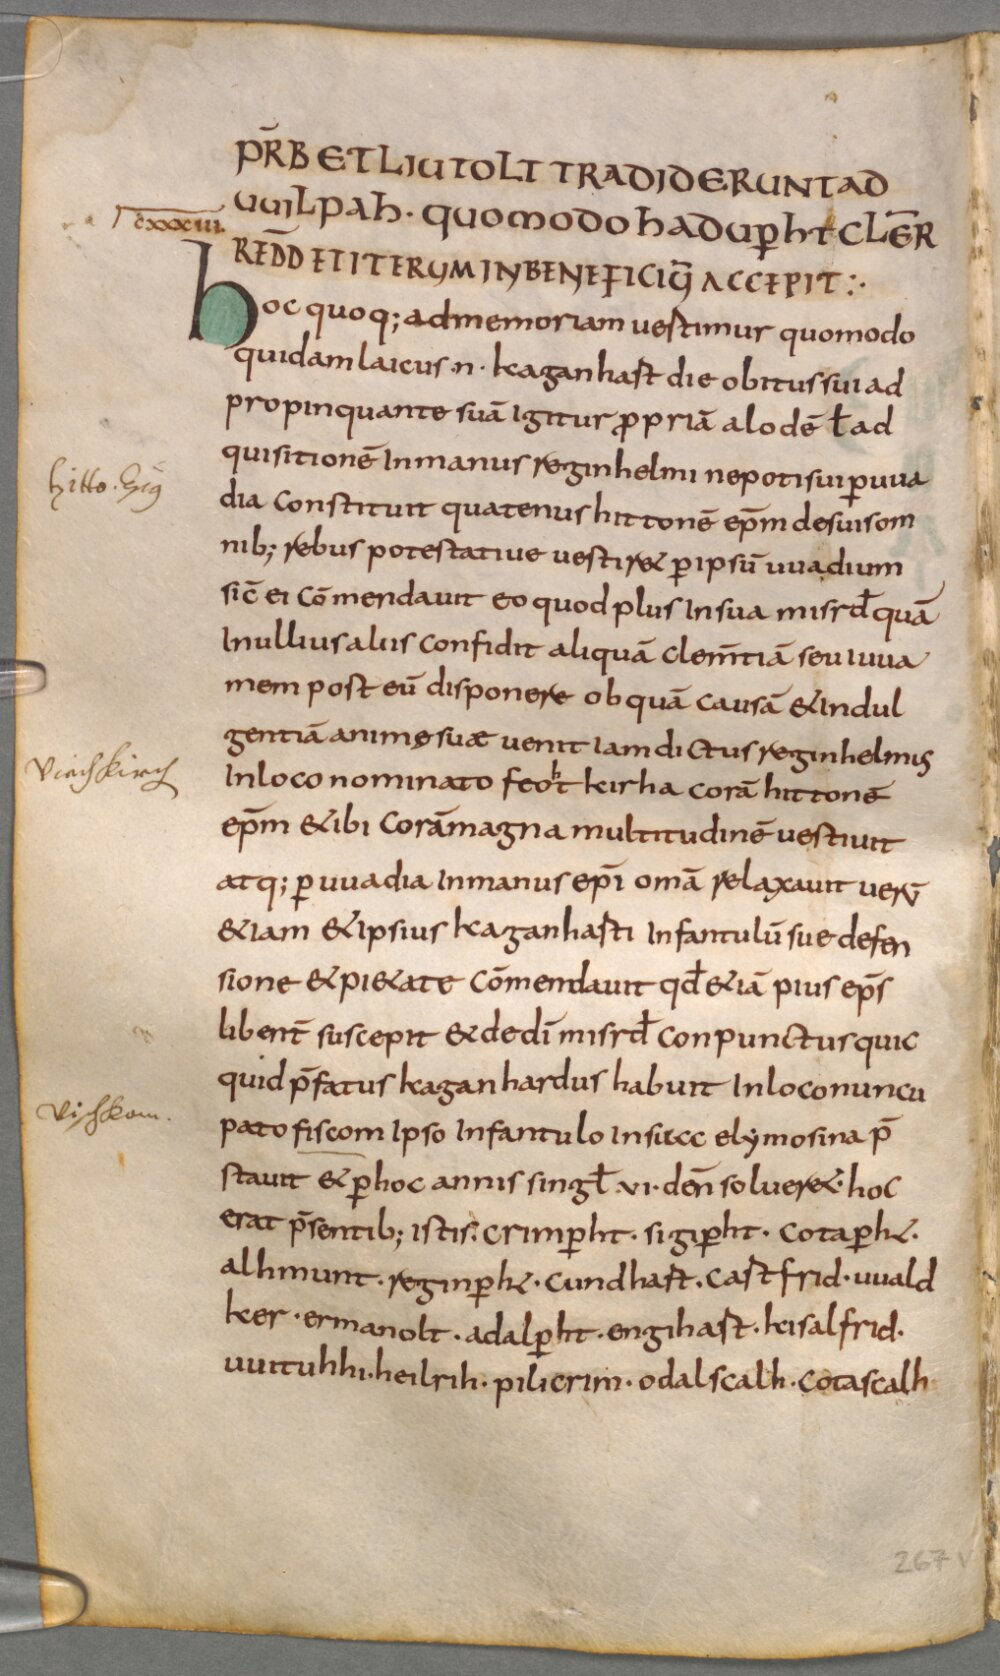 PR̄B ET LIUTOLT TRADIDERUNT AD
UUILPAH · QUOMODO HADUP̄HT CLER̄
CXXXIII.
REDD̄ ET ITERUM IN BENEFICIŪ ACCEPIT :·
hoc quoq; ad memoriam uestimur quomodo
quidam laicus ·n· kaganhast die obitus sui ad
propinquante suā igitur ꝓpriā alodē ł ad
quisitionē In manus reginhelmi nepoti sui ꝑ uua
hitto. Eig
dia Constituit quatenus hittonē ep̄m de suis om
nib; rebus potestatiue uestir& ꝑ ipsū uuadium
sic̄ ei Cōmendauit eo quod plus In sua misrd̄ quā
In ullius aliis Confidit aliquā clem̄tiā seu iuua
mem post eū disponere ob quā Causā & Indul
gentiā animę suæ uenit iam dictus reginhelmis
Viechkirch
In loco nominato feoht kirha corā hittonē
ep̄m & ibi Corā magna multitudinē uestiuit
atq; ꝑ uuadia In manus ep̄i omā relaxauit uerū
&iam & Ipsius kaganhasti Infantulū sue defen
sione & pi&ate Cōmendauit qd̄ &iā pius ep̄s
libent̄ suscepit & de dī misrd̄ Conpunctus quic
quid p̄fatus kaganhardus habuit In loco nuncu
Vischkam.
pato fiscom Ipso Infantulo Insitcc elymosina p̄
stauit & ꝑ hoc annis singł ·vi· deñ soluer&· hoc
erat p̄sentib; istis: crimꝑht · sigiꝑht · Cotaꝑh& ·
alhmunt · reginꝑh& · Cundhast · Castfrid · uuald
ker · ermanolt · adalꝑht · engihast · kisalfrid ·
uuituhhi · heilrih · pilicrim · odalscalh · Cotascalh
267 v